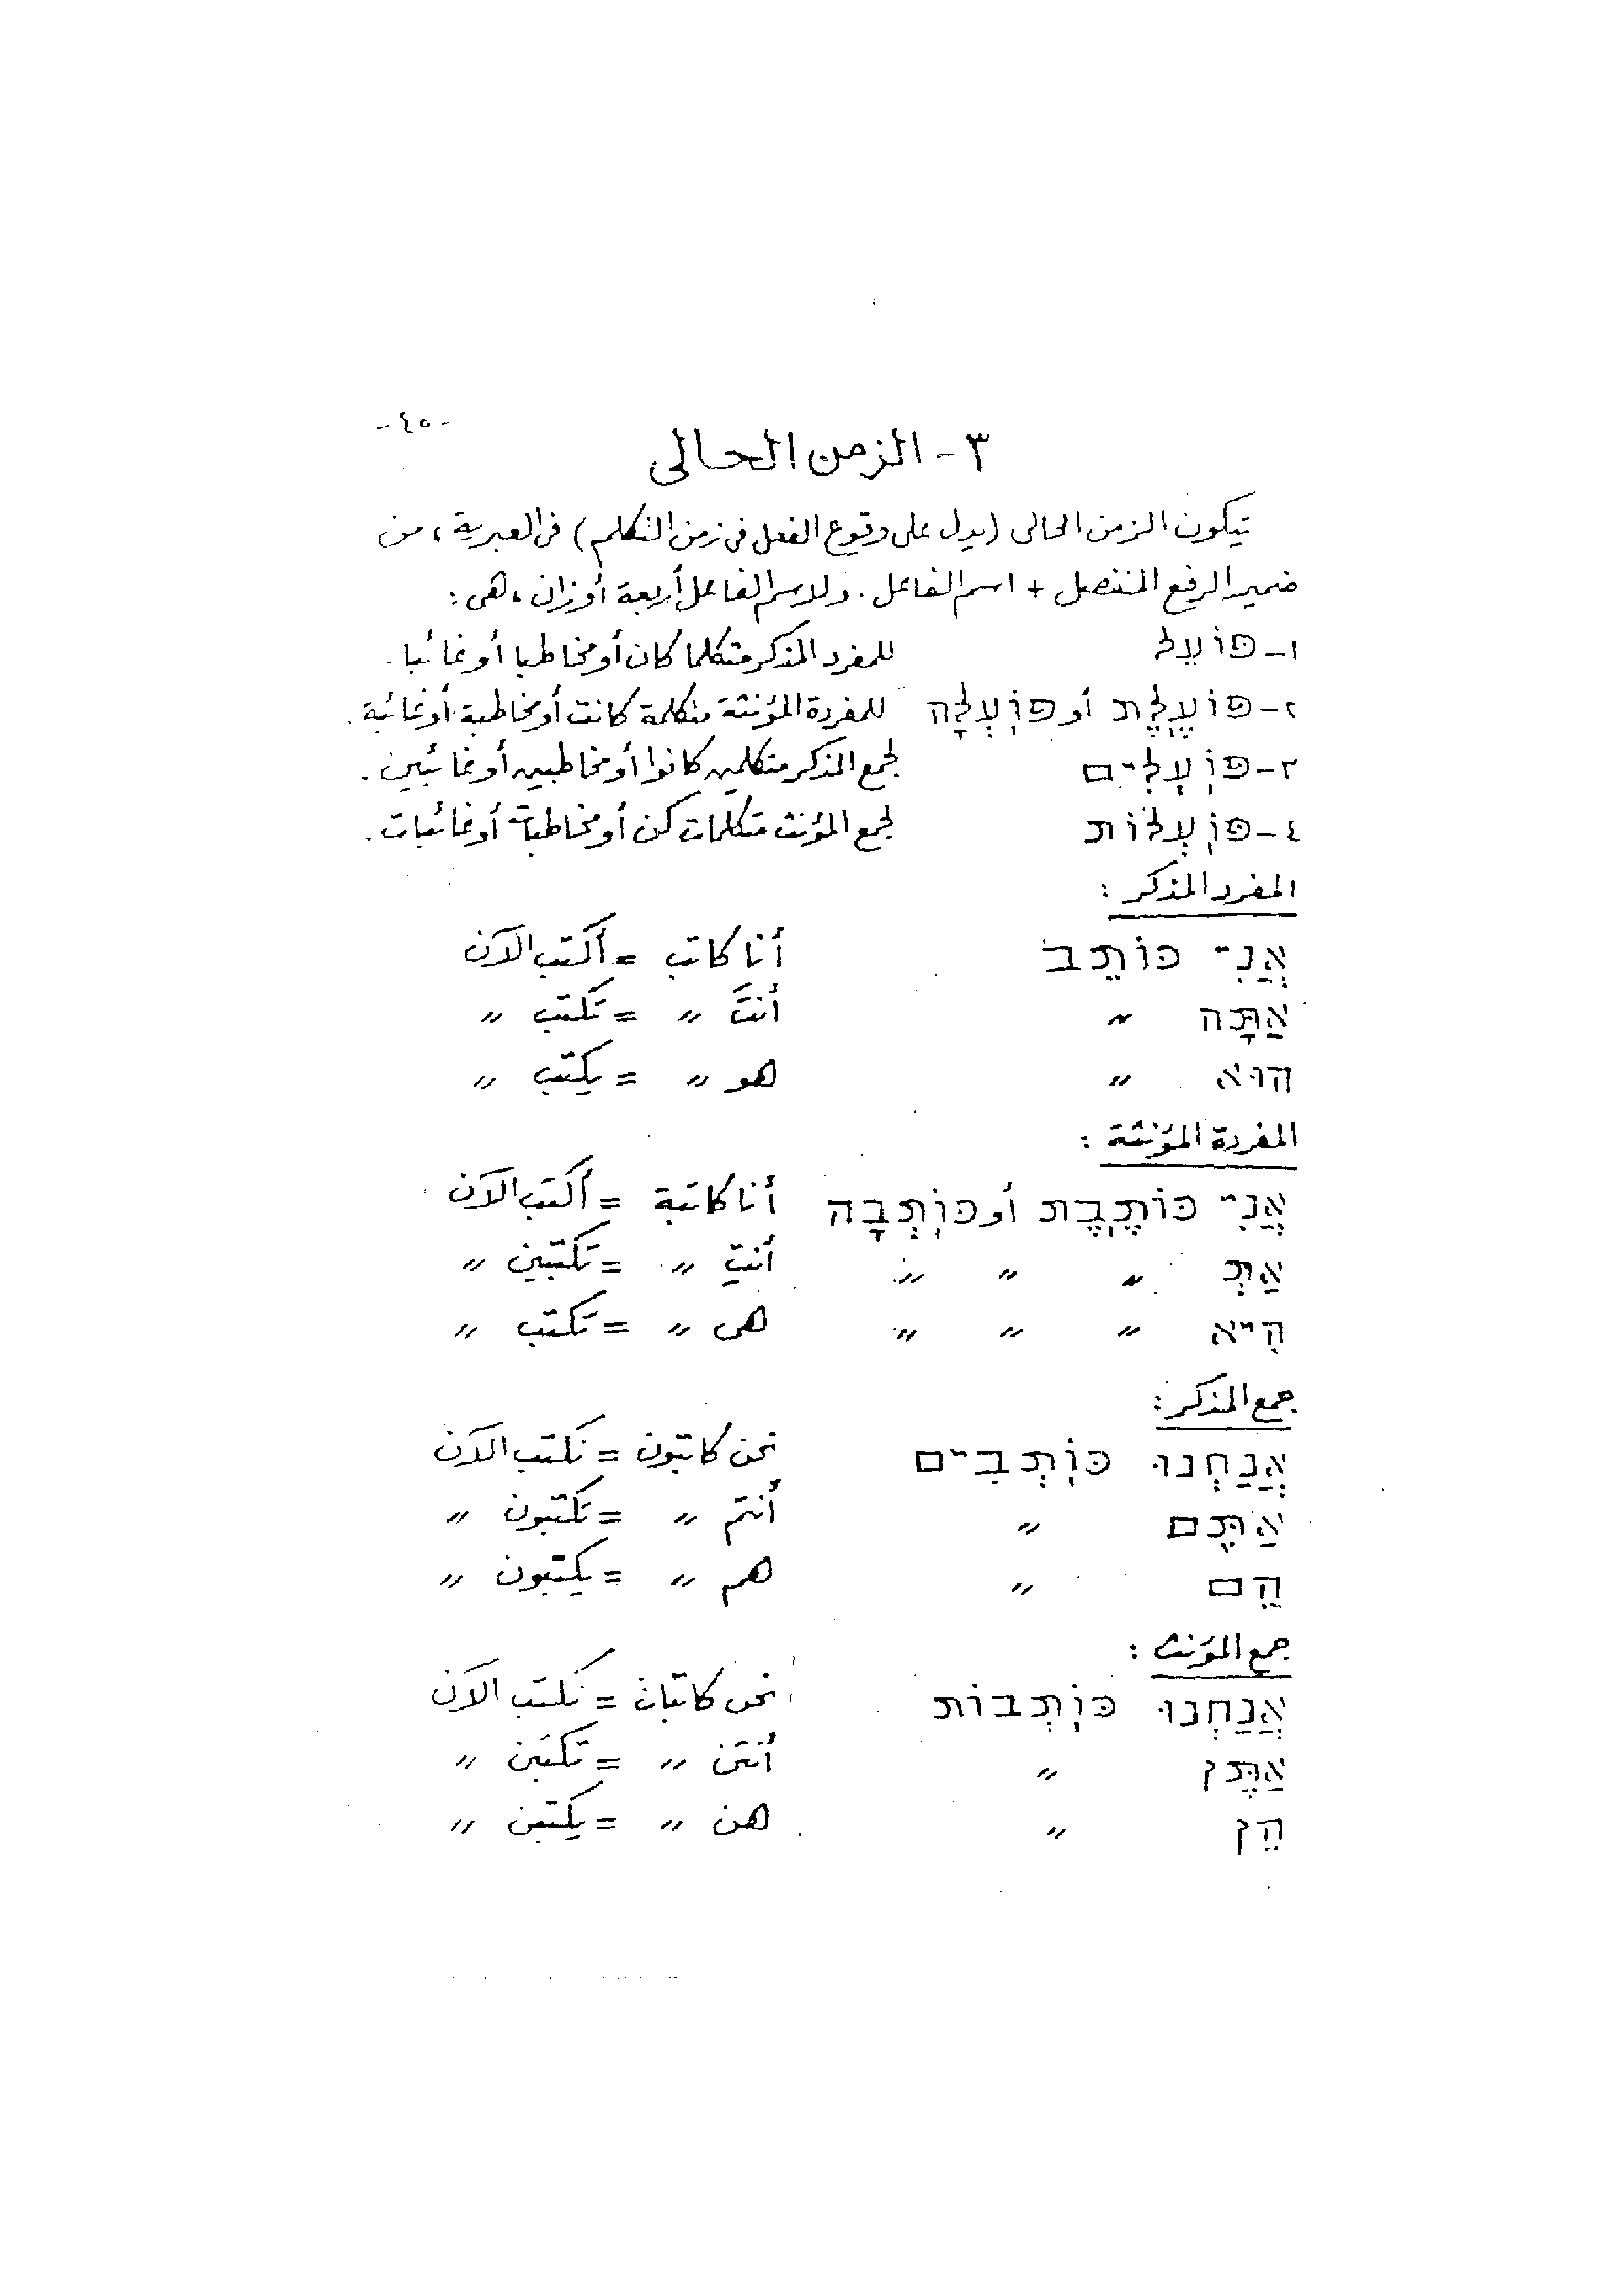 -٤٥-
٣- الزمن الحالى
يتكون الزمن الحالى (يدل على وقوع الفعل فى زمن التكلم) فى العبرية، من
ضمير الرفع المنفصل + اسم الفاعل. ولاسم الفاعل أربعة أوزان، هى:
١- פוֹעֵל للمفرد المذكر متكلما كان أو مخاطبا أو غائبا.
٢- פוֹעֶלֶת أو פוֹעְלָה للمفردة المؤنثة متكلمة كانت أو مخاطبة أو غائبة.
٣- פוֹעְלִים لجمع المذكر متكلمين كانوا أو مخاطبين أو غائبين.
٤- פוֹעְלוֹת لجمع المؤنث متكلمات كن أو مخاطبات أو غائبات.
المفرد المذكر:
אֲנִי כּוֹתֵב أنا كاتب = أكتب الآن
אַתָּה 〃 أنتَ 〃 = تكتب 〃
הוּא 〃 هو 〃 = يكتب 〃
المفردة المؤنثة:
אֲנִי כּוֹתֶבֶת أو כּוֹתְבָה أنا كاتبة = أكتب الآن
אַתְּ 〃 〃 〃 أنتِ 〃 = تكتبين 〃
הִיא 〃 〃 〃 هى 〃 = تكتب 〃
جمع المذكر:
אֲנַחְנוּ כּוֹתְבִים نحن كاتبون = نكتب الآن
אַתֶּם 〃 أنتم 〃 = تكتبون 〃
הֵם 〃 هم 〃 = يكتبون 〃
جمع المؤنث:
אֲנַחְנוּ כּוֹתְבוֹת نحن كاتبات = نكتب الآن
אַתֶּן 〃 أنتن 〃 = تكتبن 〃
הֵן 〃 هن 〃 = يكتبن 〃